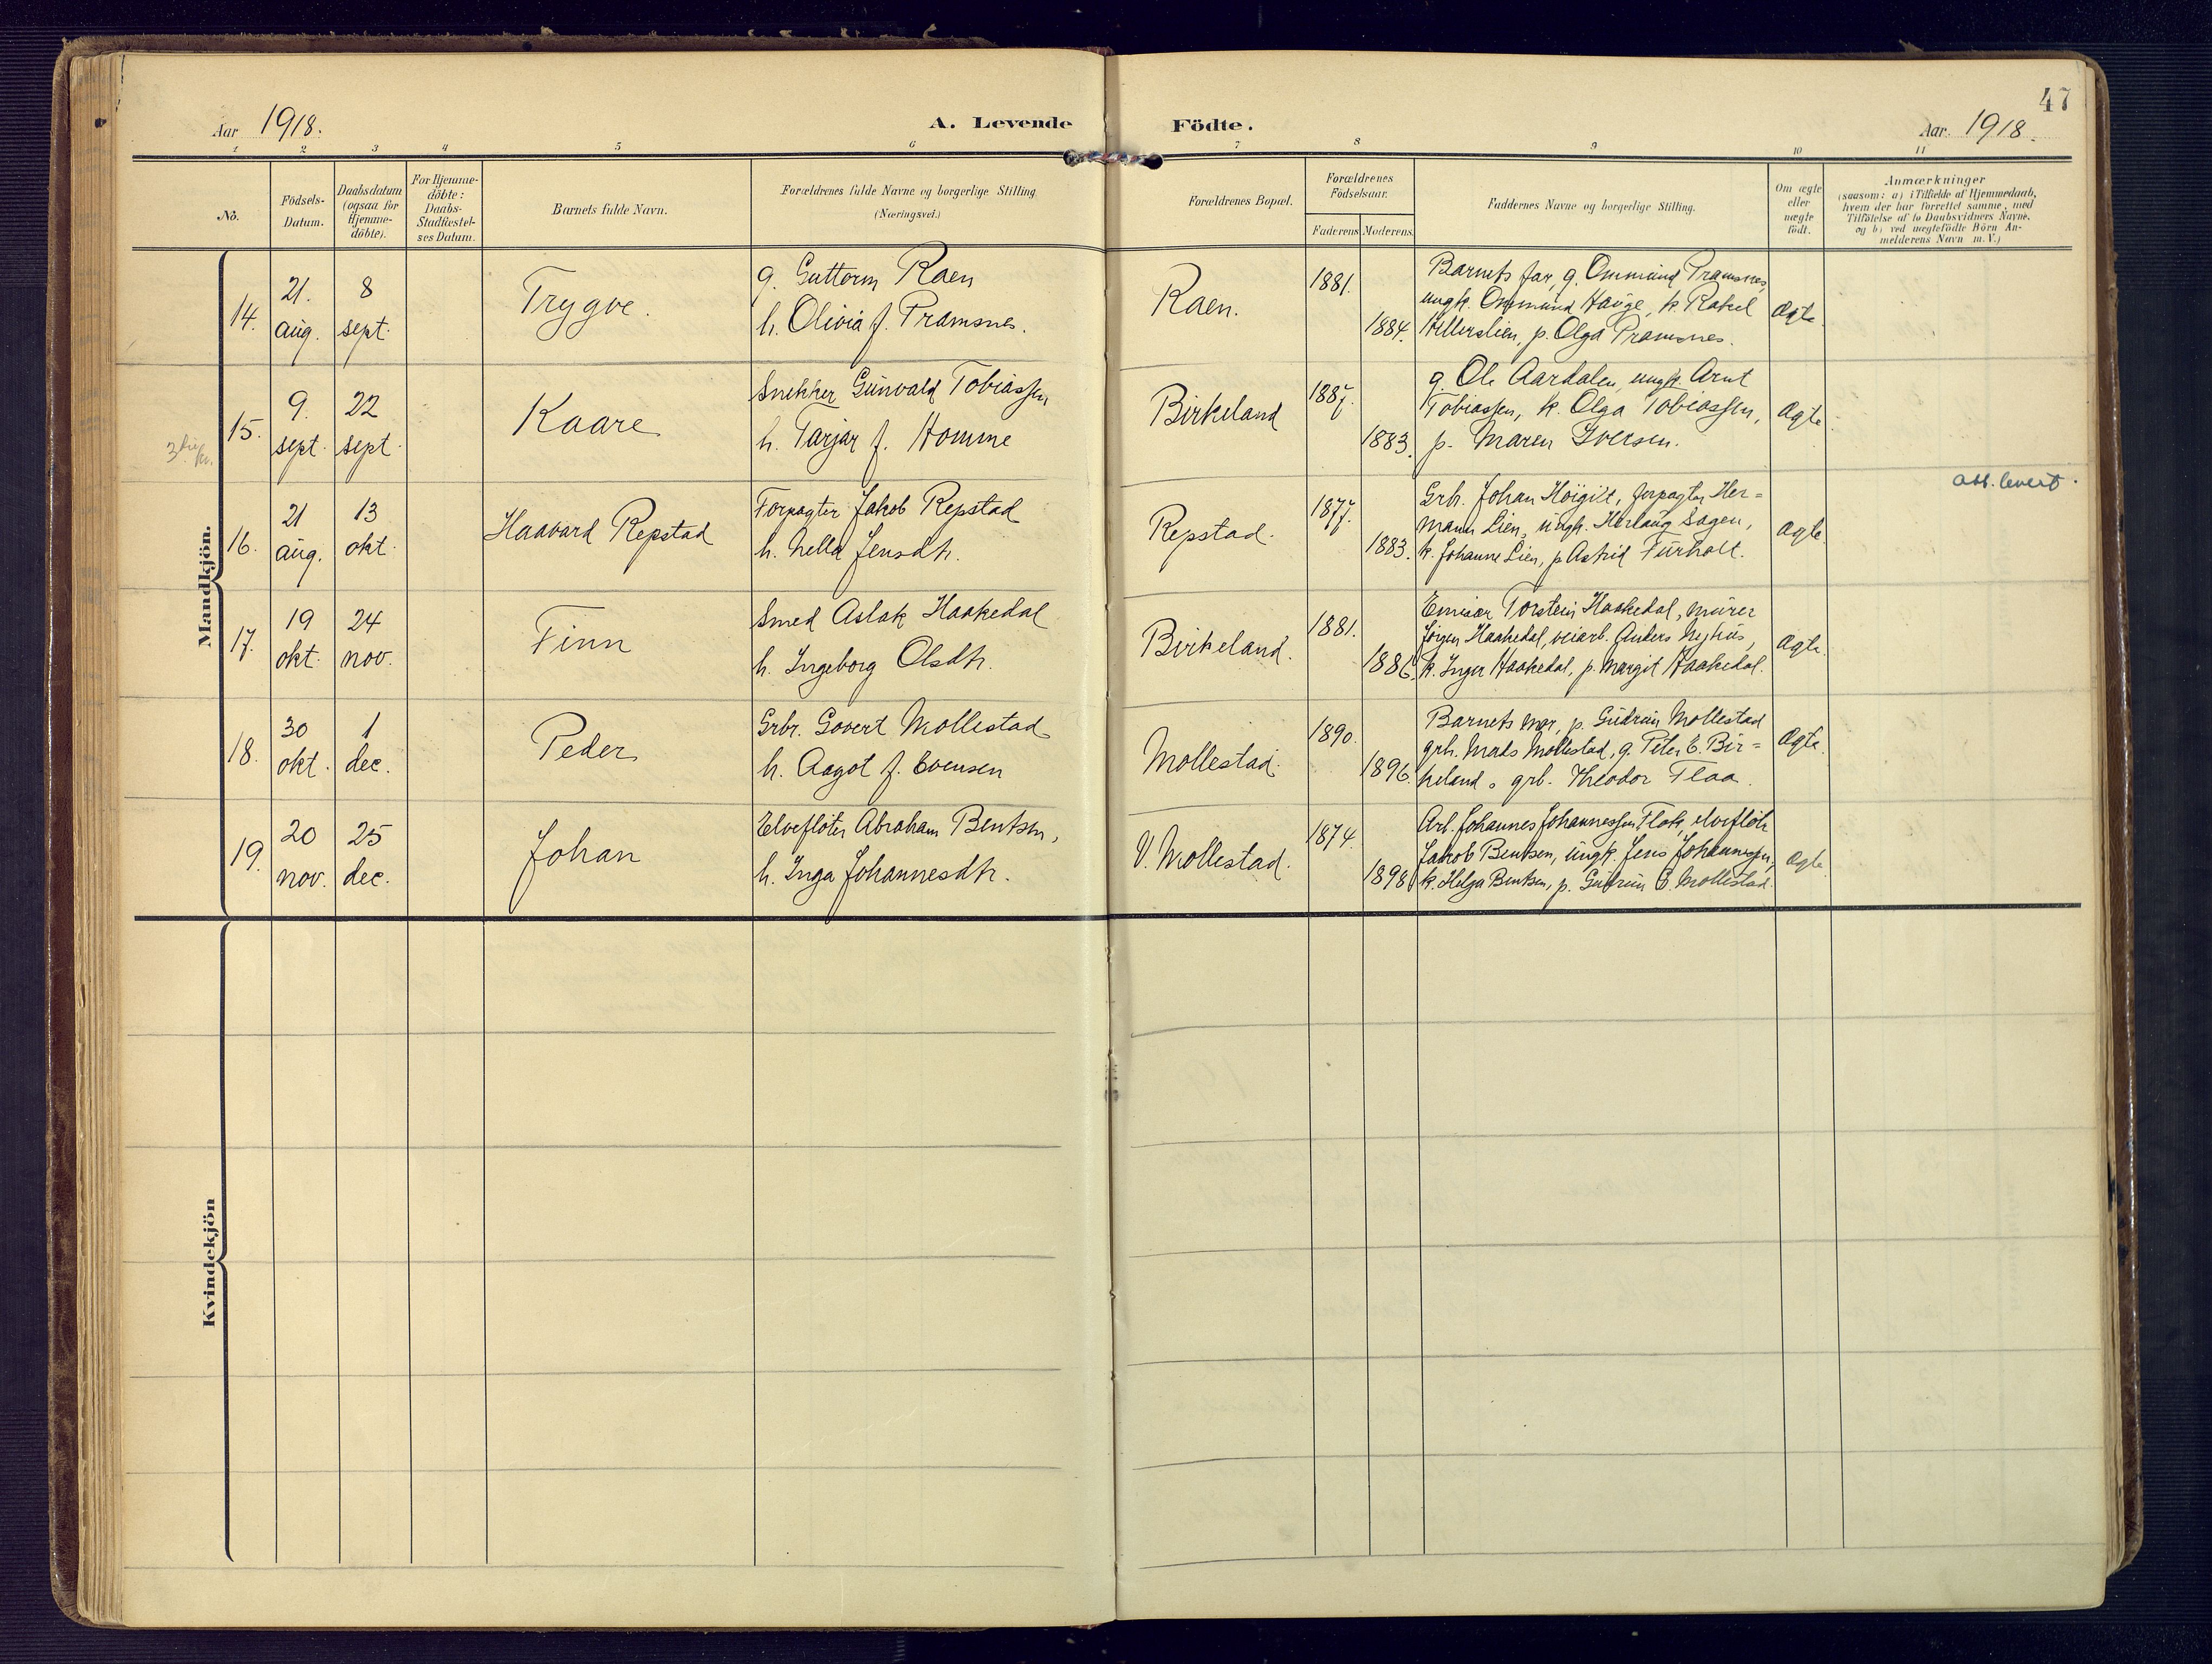 47
Aar 1918.
A. Levende Födte.
Aar. 1918.
1 2 3 4 5 6 7 8 9 10 11
No.
Födsels-
Datum.
Daabsdatum
(ogsaa for
Hjemme-
döbte).
For Hjemme-
döbte:
Daabs-
Stadfæstel-
ses Datum.
Barnets fulde Navn.
Forældrenes fulde Navne og borgerlige Stilling.
(Næringsvei.)
Forældrenes Bopæl.
Forældrenes
Födselsaar.
Faderens
Moderens.
Faddernes Navne og borgerlige Stilling.
Om ægte
eller
uægte
födt.
Anmærkninger
(saasom: a) i Tilfælde af Hjemmedaab,
hvem der har forrettet samme, med
Tilföielse af to Daabsvidners Navne,
og b) ved uægtefödte Börn An-
melderens Navn m. V.)
Mandkjön.
14.
21.
aug.
8
sept.
Trygve.
g. Guttorm Raen
h. Olivia f. Pramsnes.
Raen.
1881.
1884.
Barnets far, g. Ommund Pramsnes,
ungk. Ommund Hauge, k. Rakel
Hillerslien, p. Olga Pramsnes.
Ægte.
15.
9.
sept.
22
sept.
Kaare
Snekker Gunvald Tobiassen
h. Tarjar f. Homme
Birkeland
1887.
1883.
g. Ole Aardalen, ungk. Arnt
Tobiassen, k. Olga Tobiassen,
p. Maren Iversen.
Ægte
16.
21
aug.
13
okt.
Haavard Repstad
Forpagter Jakob Repstad
h. Nella Jensdtr.
Repstad.
1877.
1883.
Grb. Johan Høigilt, forpagter Her=
mann Lien, ungk. Herlaug Sagen,
k. Johanne Lien, p. Astrid Furholt.
Ægte.
att. levert.
17.
19
okt.
24
nov.
Finn
Smed Aslak Haakedal
h. Ingeborg Olsdtr.
Birkeland.
1881.
1886.
Emisær Torstein Haakedal, murer
Jørgen Haakedal, veiarb. Anders Nyhus,
k. Inger Haakedal, p. Margit Haakedal.
Ægte.
18.
30
okt.
1
dec.
Peder
Grbr. Govert Mollestad
h. Aagot f. Evensen
Mollestad.
1890.
1896.
Barnets mor, p. Gudrun Mollestad
grb. Mads Mollestad, g. Peter E. Bir=
keland, grb. Theodor Flaa.
Ægte.
19.
20
nov.
25
dec.
Johan
Elvefløter Abraham Bentsen,
h. Inga Johannesdtr.
V. Mollestad.
1874.
1898
Arb. Johannes Johannessen Flak, elvefløter
Jakob Bentsen, ungk. Jens Johannessen,
k. Helga Bentsen, p. Gudrun E. Mollestad.
Ægte.
Kvindekjön